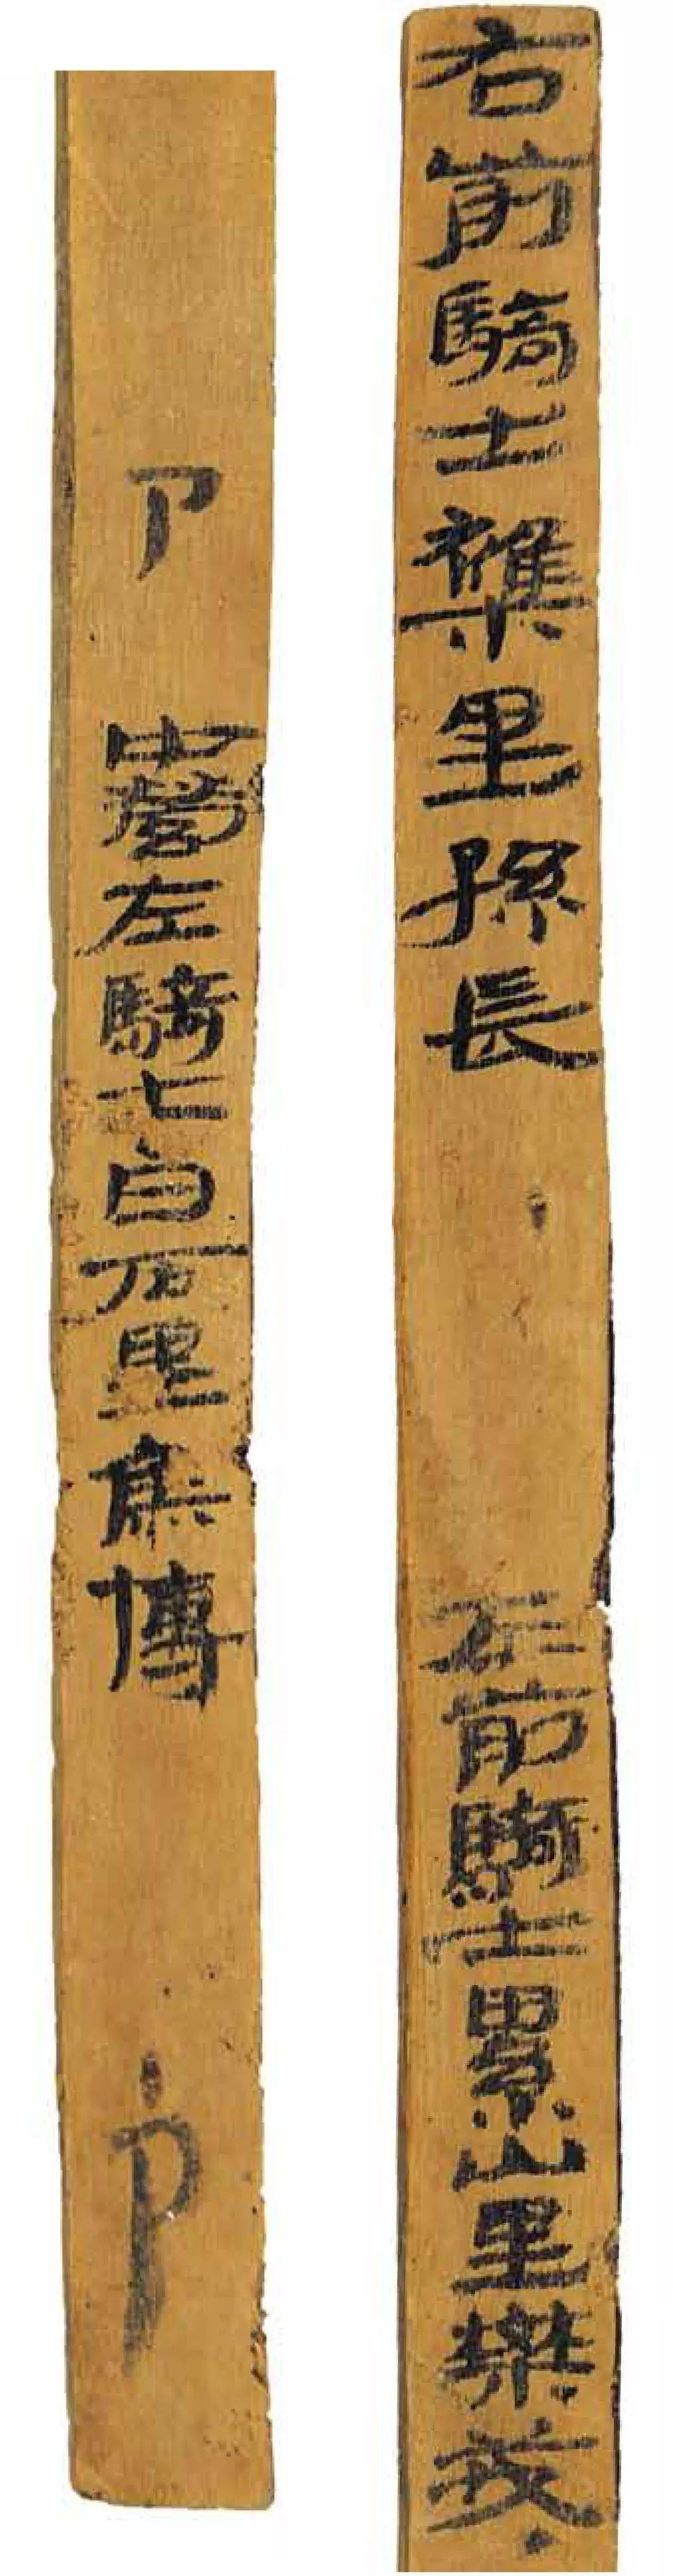 右前騎士襍里孫長
左前騎士累山里樂
卩
中營左騎士白石里
博
卩